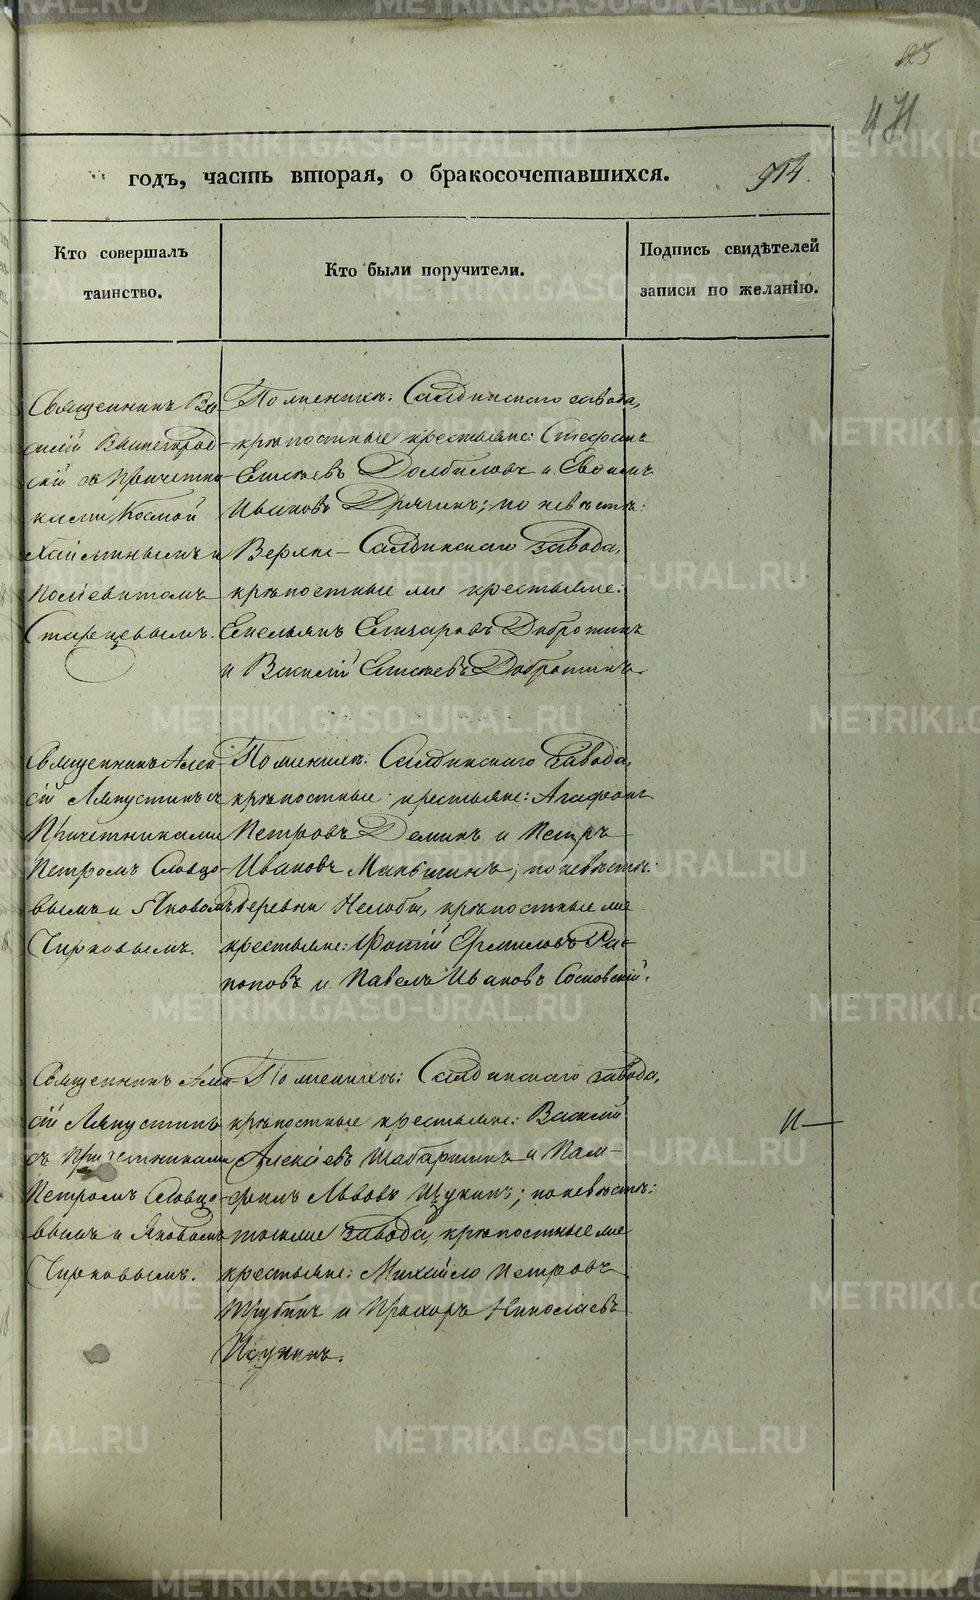 123
годъ, часть вторая, о бракосочетавшихся.
914.
Кто совершалъ
таинство.
Кто были поручители.
Подпись свидѣтелей
записи по желанію.
Священникъ Ва-
силій
скій съ Причетни-
ками, Козмой
и
Старцевымъ.
По женихѣ: Салдинскаго завода,
крѣпостные крестьяне: Стефанъ
Елисѣевъ Долбиловъ и
Ивановъ Дрягинъ; по невѣстѣ:
Верхне-Салдинскаго завода,
крѣпостные же крестьяне:
Емельянъ Елизаровъ Добротинъ
и Василій Елисѣевъ Добротинъ.
Священникъ Алек-
сій Ляпустинъ съ
Причетниками
Петромъ Словцо-
вымъ и Яковомъ
Чирковымъ.
По женихѣ: Салдинскаго завода,
крѣпостные крестьяне: Агафонъ
Петровъ Деминъ и Петръ
Ивановъ Манькинъ; по невѣстѣ:
деревни Нелобы, крѣпостные же
крестьяне: Фотій Ермиловъ
и Павелъ Ивановъ Сосновскій.
Священникъ Алек-
сій Ляпустинъ
съ Причетниками
Петромъ Словцо-
вымъ и Яковомъ
Чирковымъ.
По женихѣ: Салдинскаго завода,
крѣпостные крестьяне: Василій
Алексѣевъ Шабаршинъ и Пам-
филъ Львовъ Щукинъ; по невѣстѣ:
того же завода, крѣпостные же
крестьяне: Михайло Петровъ
Трубинъ и Прохоръ Николаевъ
METRIKI.GASO-URAL.RU